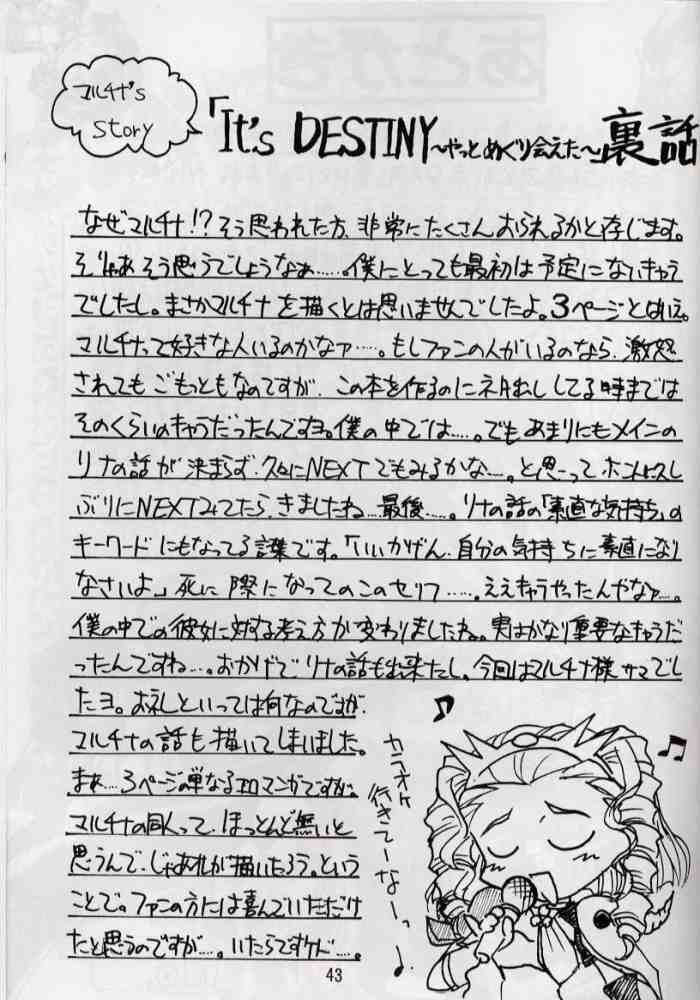 マルチナ's
Story
「It's DESTINY〜やっとめぐり会えた〜」裏話
なぜマルチナ!?そう思われた方、非常にたくさんおられるかと存じます。
そりゃあそう思うでしょうなぁ……。僕にとっても最初は予定にないキャラ
でしたし。まさかマルチナを描くとは思いませんでしたよ。3ページとはいえ。
マルチナって好きな人いるのかなァ……。もしファンの人がいるのなら、激怒
されてもごもっともなのですが、この本を作るのにネタ出ししてる時までは
そのくらいのキャラだったんですヨ。僕の中では……。でもあまりにもメインの
リナの話が決まらず、久々にNEXTでもみるかな……。と思ってホント久し
ぶりにNEXTみてたら、きましたね…最後……。リナの話の「素直な気持ち」の
キーワードにもなってる言葉です。「いいかげん、自分の気持ちに素直になり
なさいよ」死に際になってのこのセリフ……。ええキャラやったんやなァ…。
僕の中での彼女に対する考え方が変わりましたね。実はかなり重要なキャラだ
ったんですね…。おかげでリナの話も出来たし。今回はマルチナ様サマでし
たヨ。お礼といっては何なのですが、
マルチナの話も描いてしまいました。
まぁ…3ページの単なるエロマンガですが。
マルチナの同人って、ほっとんど無いと
思うんで、じゃあオレが描いたろう。という
ことで。ファンの方には喜んでいただけ
たと思うのですが…。いたらですケド…。
カラオケ
行きてーなーっ
43